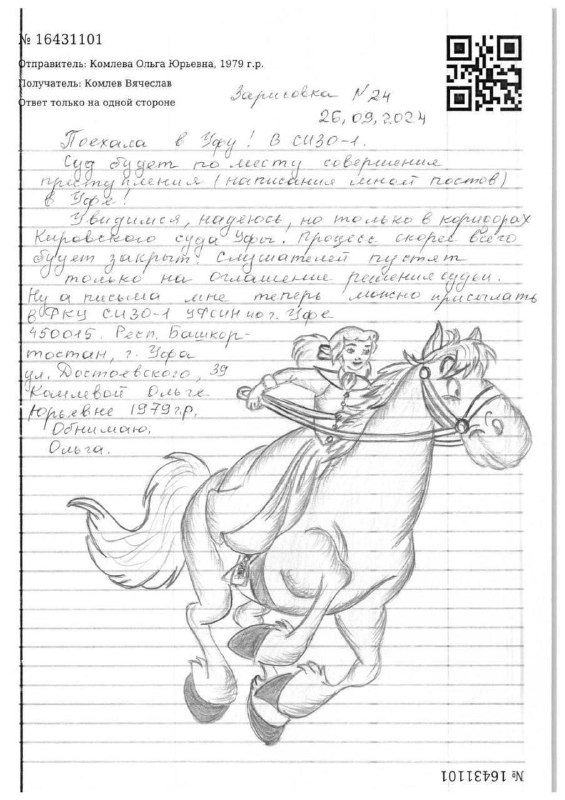 № 16431101
Отправитель: Комлева Ольга Юрьевна, 1979 г.р.
Получатель: Комлев Вячеслав
Ответ только на одной стороне
Зарисовка № 24
26.09.2024
Поехала в Уфу! В СИЗО-1.
Суд будет по месту совершения
преступления (написания мной постов)
в Уфе!
Увидимся, надеюсь, но только в коридорах
Кировского суда Уфы. Процесс скорее всего
будет закрыт! Слушателей пустят
только на оглашение решения судьи.
Ну а письма мне теперь можно присылать
в ФКУ СИЗО-1 УФСИН по г. Уфе
450015. Респ. Башкор-
тостан, г. Уфа
ул. Достоевского, 39
Комлевой Ольге
Юрьевне 1979 г.р.
Обнимаю,
Ольга.
№ 16431101